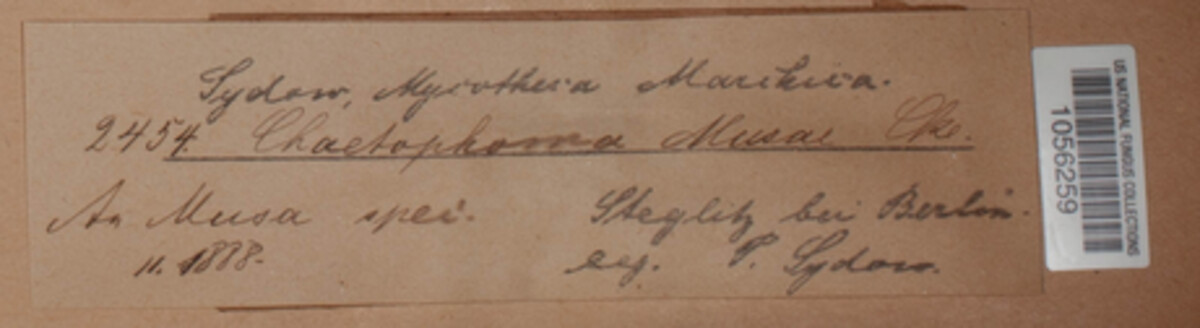 Sydow, Mycotheca Marchica.
2454. Chaetophoma Musae Cke.
An Musa spec.
11. 1888.
Steglitz bei Berlin.
leg. P. Sydow.
US NATIONAL FUNGUS COLLECTIONS
1056259